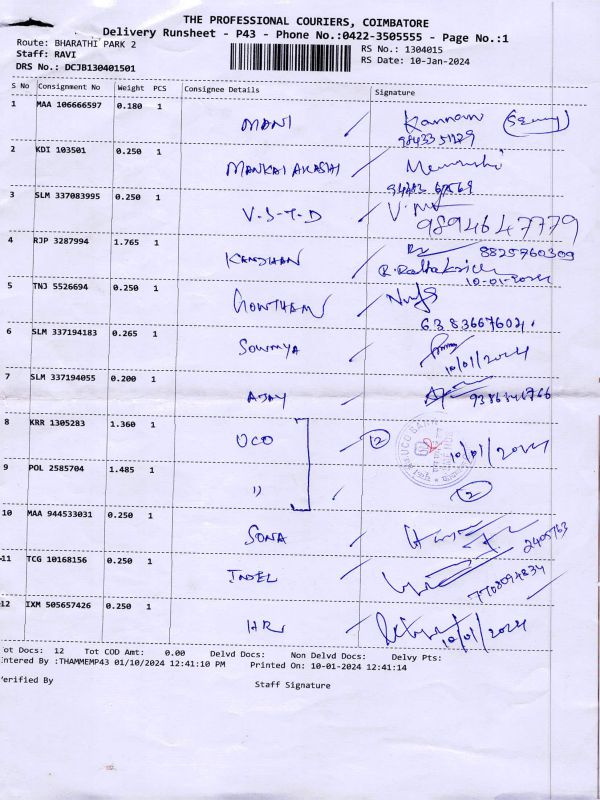 THE PROFESSIONAL COURIERS, COIMBATORE
Delivery Runsheet - P43 - Phone No.:0422-3505555 - Page No.:1
Route: BHARATHI PARK 2 RS No.: 1304015
Staff: RAVI RS Date: 10-Jan-2024
DRS No.: DCJB130401501
S No Consignment No Weight PCS Consignee Details Signature
1 MAA 106666597 0.180 1 MANI Kannan
2 KDI 103501 0.250 1
3 SLM 337083995 0.250 1 V-S-T-D 9894647779
4 RJP 3287994 1.765 1 KANDHAN 8825960309
10-01-2024
5 TNJ 5526694 0.250 1 GOWTHAM
6383667602
6 SLM 337194183 0.265 1 SOWMYA
10/01/2024
7 SLM 337194055 0.200 1 AJAY
8 KRR 1305283 1.360 1 UCO 2 10/01/2024
9 POL 2585704 1.485 1 11 2
10 MAA 944533031 0.250 1 SONA
11 TCG 10168156 0.250 1
12 IXM 505657426 0.250 1 10/01/2024
ot Docs: 12 Tot COD Amt: 0.00 Delvd Docs: Non Delvd Docs: Delvy Pts:
ntered By :THAMMEMP43 01/10/2024 12:41:10 PM Printed On: 10-01-2024 12:41:14
erified By Staff Signature